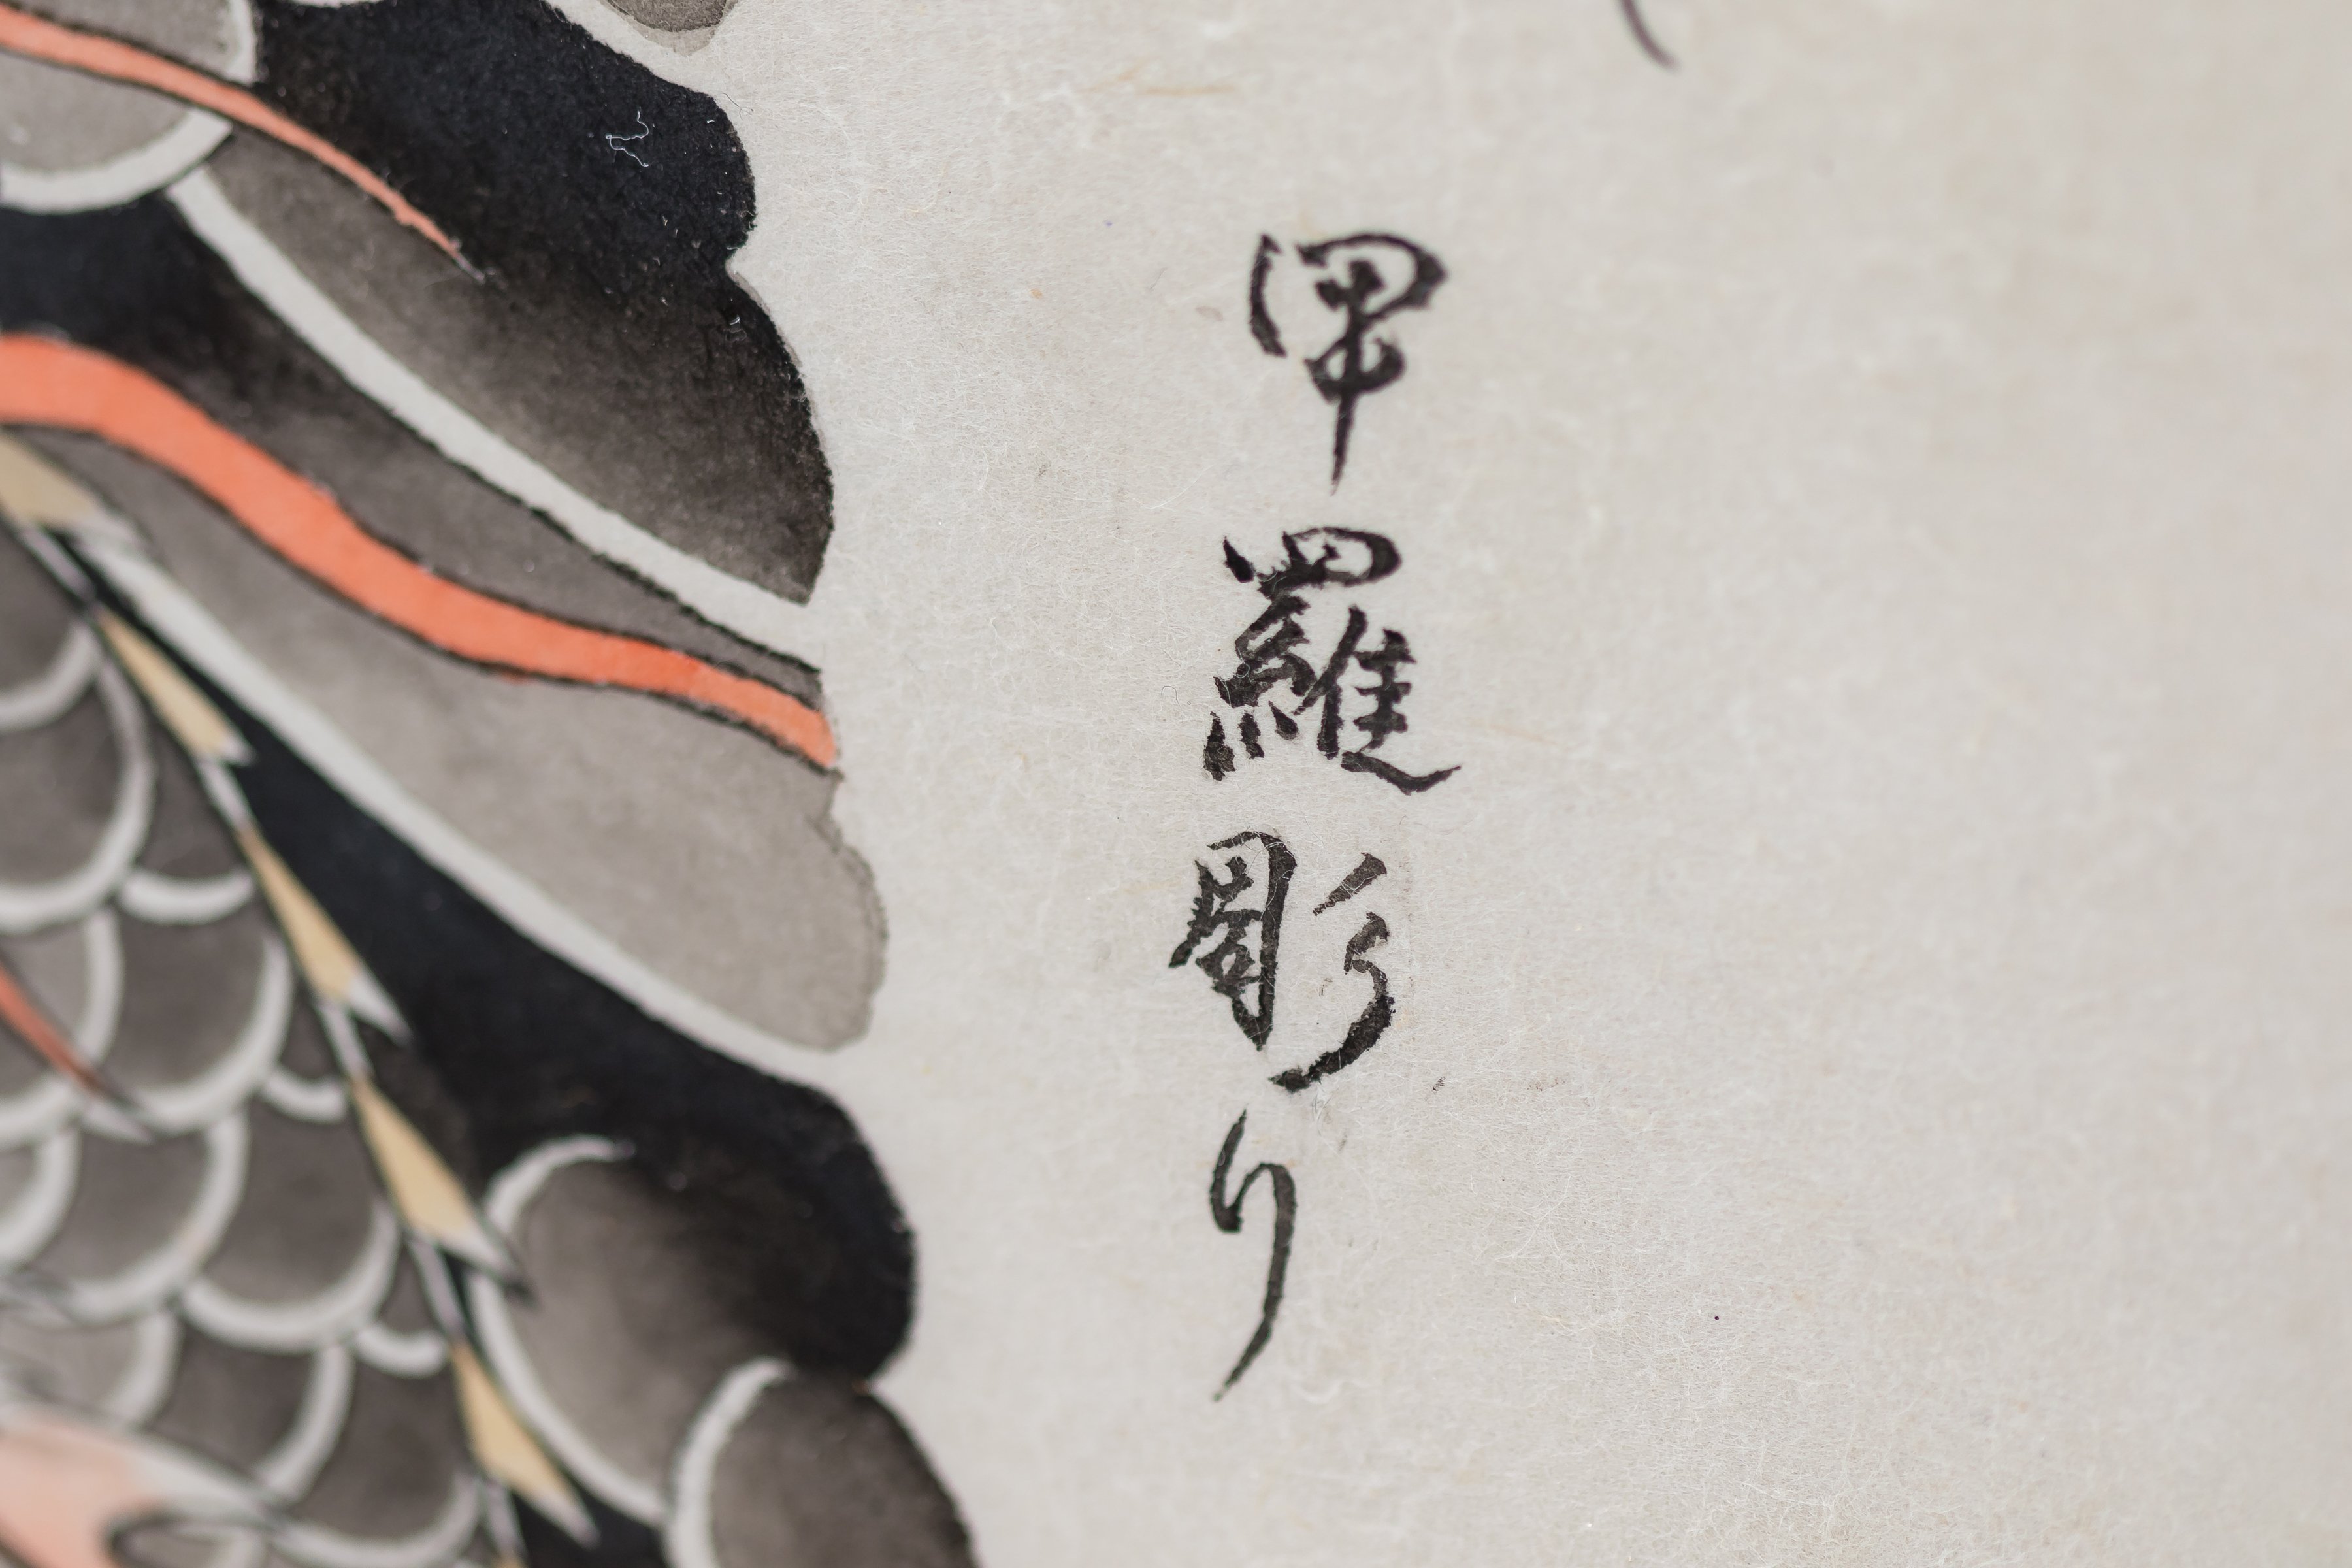 甲羅彫り